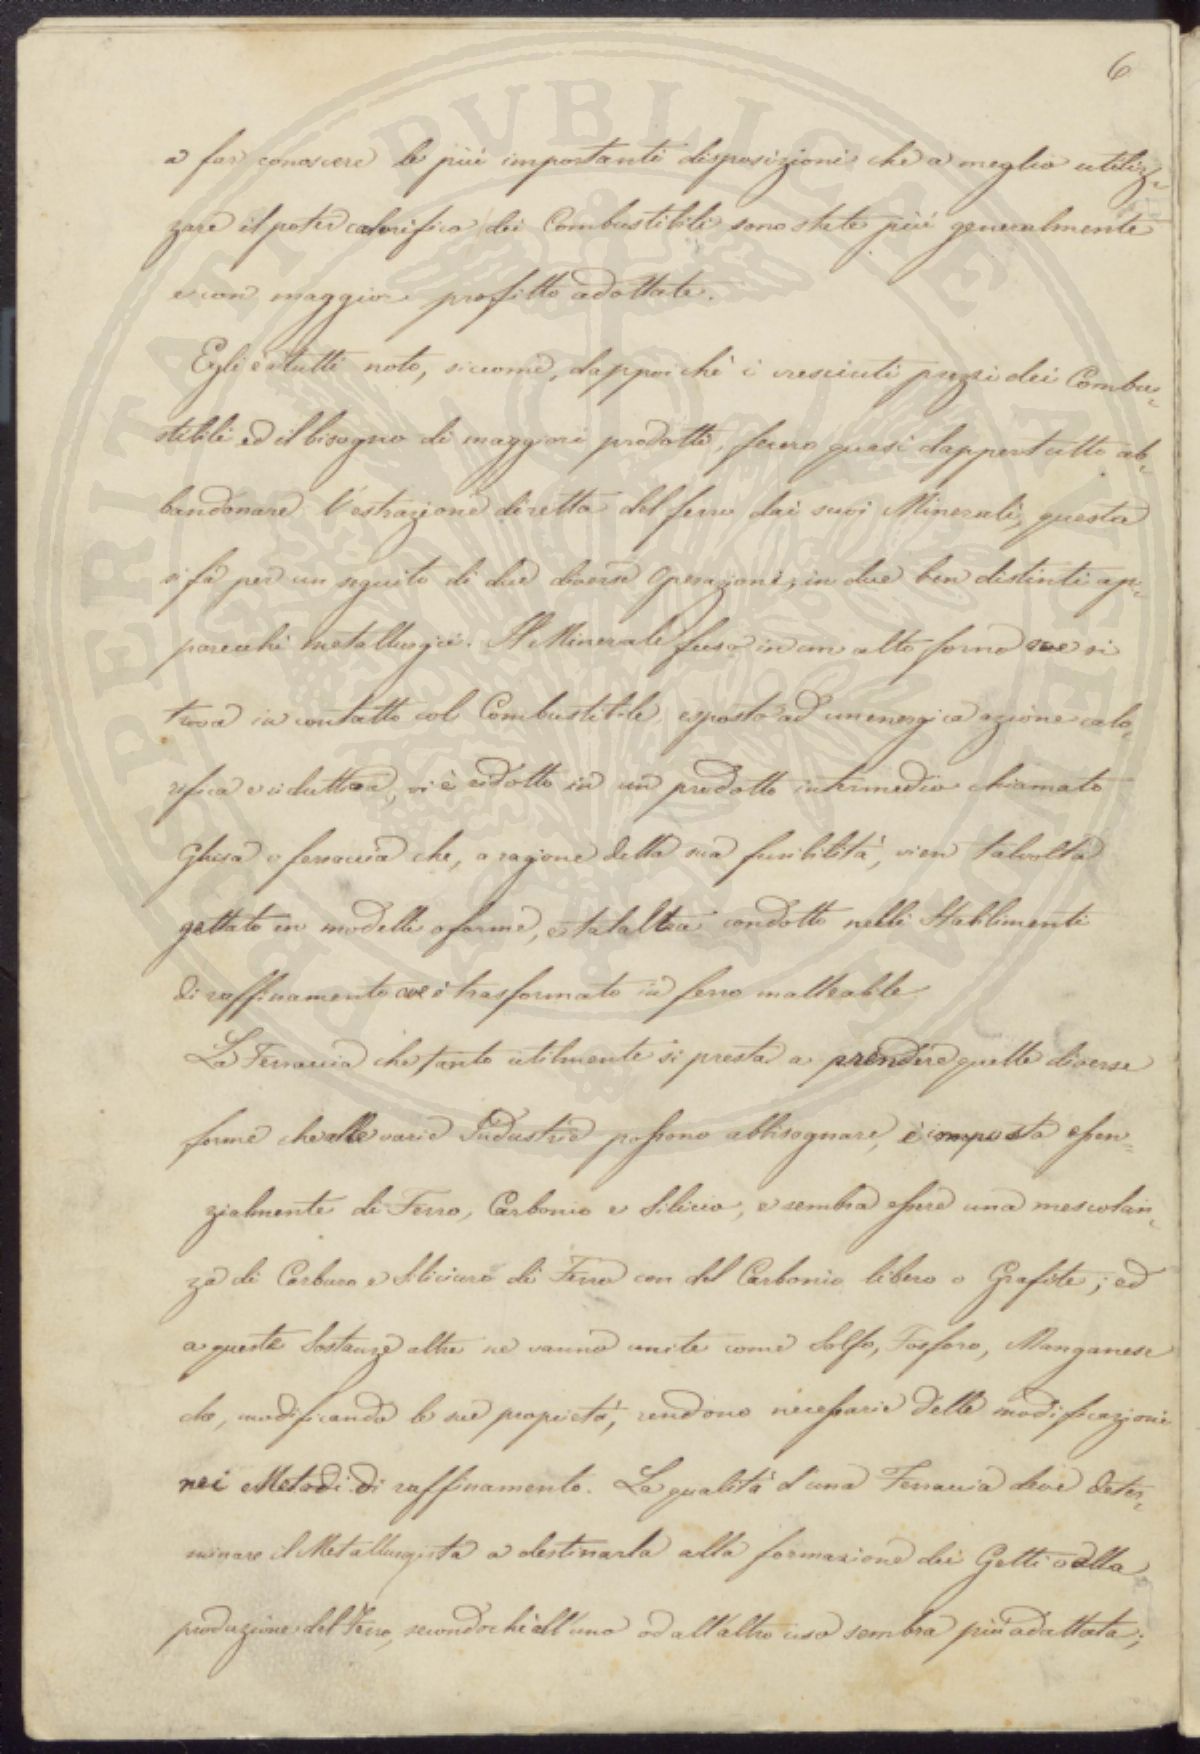 6
a far conoscere le più importanti disposizioni che a meglio utiliz-
zare il poter calorifico dei Combustibili sono state più generalmente
e con maggior profitto adottate.
Egli è a tutti noto, siccome, dappoichè i cresciuti prezzi dei Combu-
stibili ed il bisogno di maggiori prodotti, fecero quasi dappertutto ab-
bandonare l'estrazione diretta del ferro dai suoi Minerali, questa
si fà per un seguito di due diverse Operazioni, in due ben distinti ap-
parecchi metallurgici. Il Minerale fuso in un alto forno ove si
trova in contatto col Combustibile, esposto ad un energica azione calo-
rifica e riduttrice, vi è ridotto in un prodotto intermedio chiamato
Ghisa o ferraccia che, a ragione della sua fusibilità, vien talvolta
gettato in modelli o forme, e talaltra condotto nelli Stabilimenti
di raffinamento ove è trasformato in ferro malleabile
La Ferraccia che tanto utilmente si presta a prendere quelle diverse
forme che alle varie Industrie possono abbisognare, è composta essen-
zialmente di Ferro, Carbonio e Silicio, e sembra essere una mescolan-
za di Carburo e Siliciuro di Ferro con del Carbonio libero o Grafite; ed
a queste Sostanze altre ne vanno unite come Solfo, Fosforo, Manganese
che, modificando le sue proprietà, rendono necessarie delle modificazioni
nei Metodi di raffinamento. La qualità d'una Ferraccia deve deter-
minare il Metallurgista a destinarla alla formazione dei Getti o alla
produzione del Ferro, secondochè all'uno od all'altro uso sembra più adattata;
PROSPERITATI PUBLICAE AUGENDAE